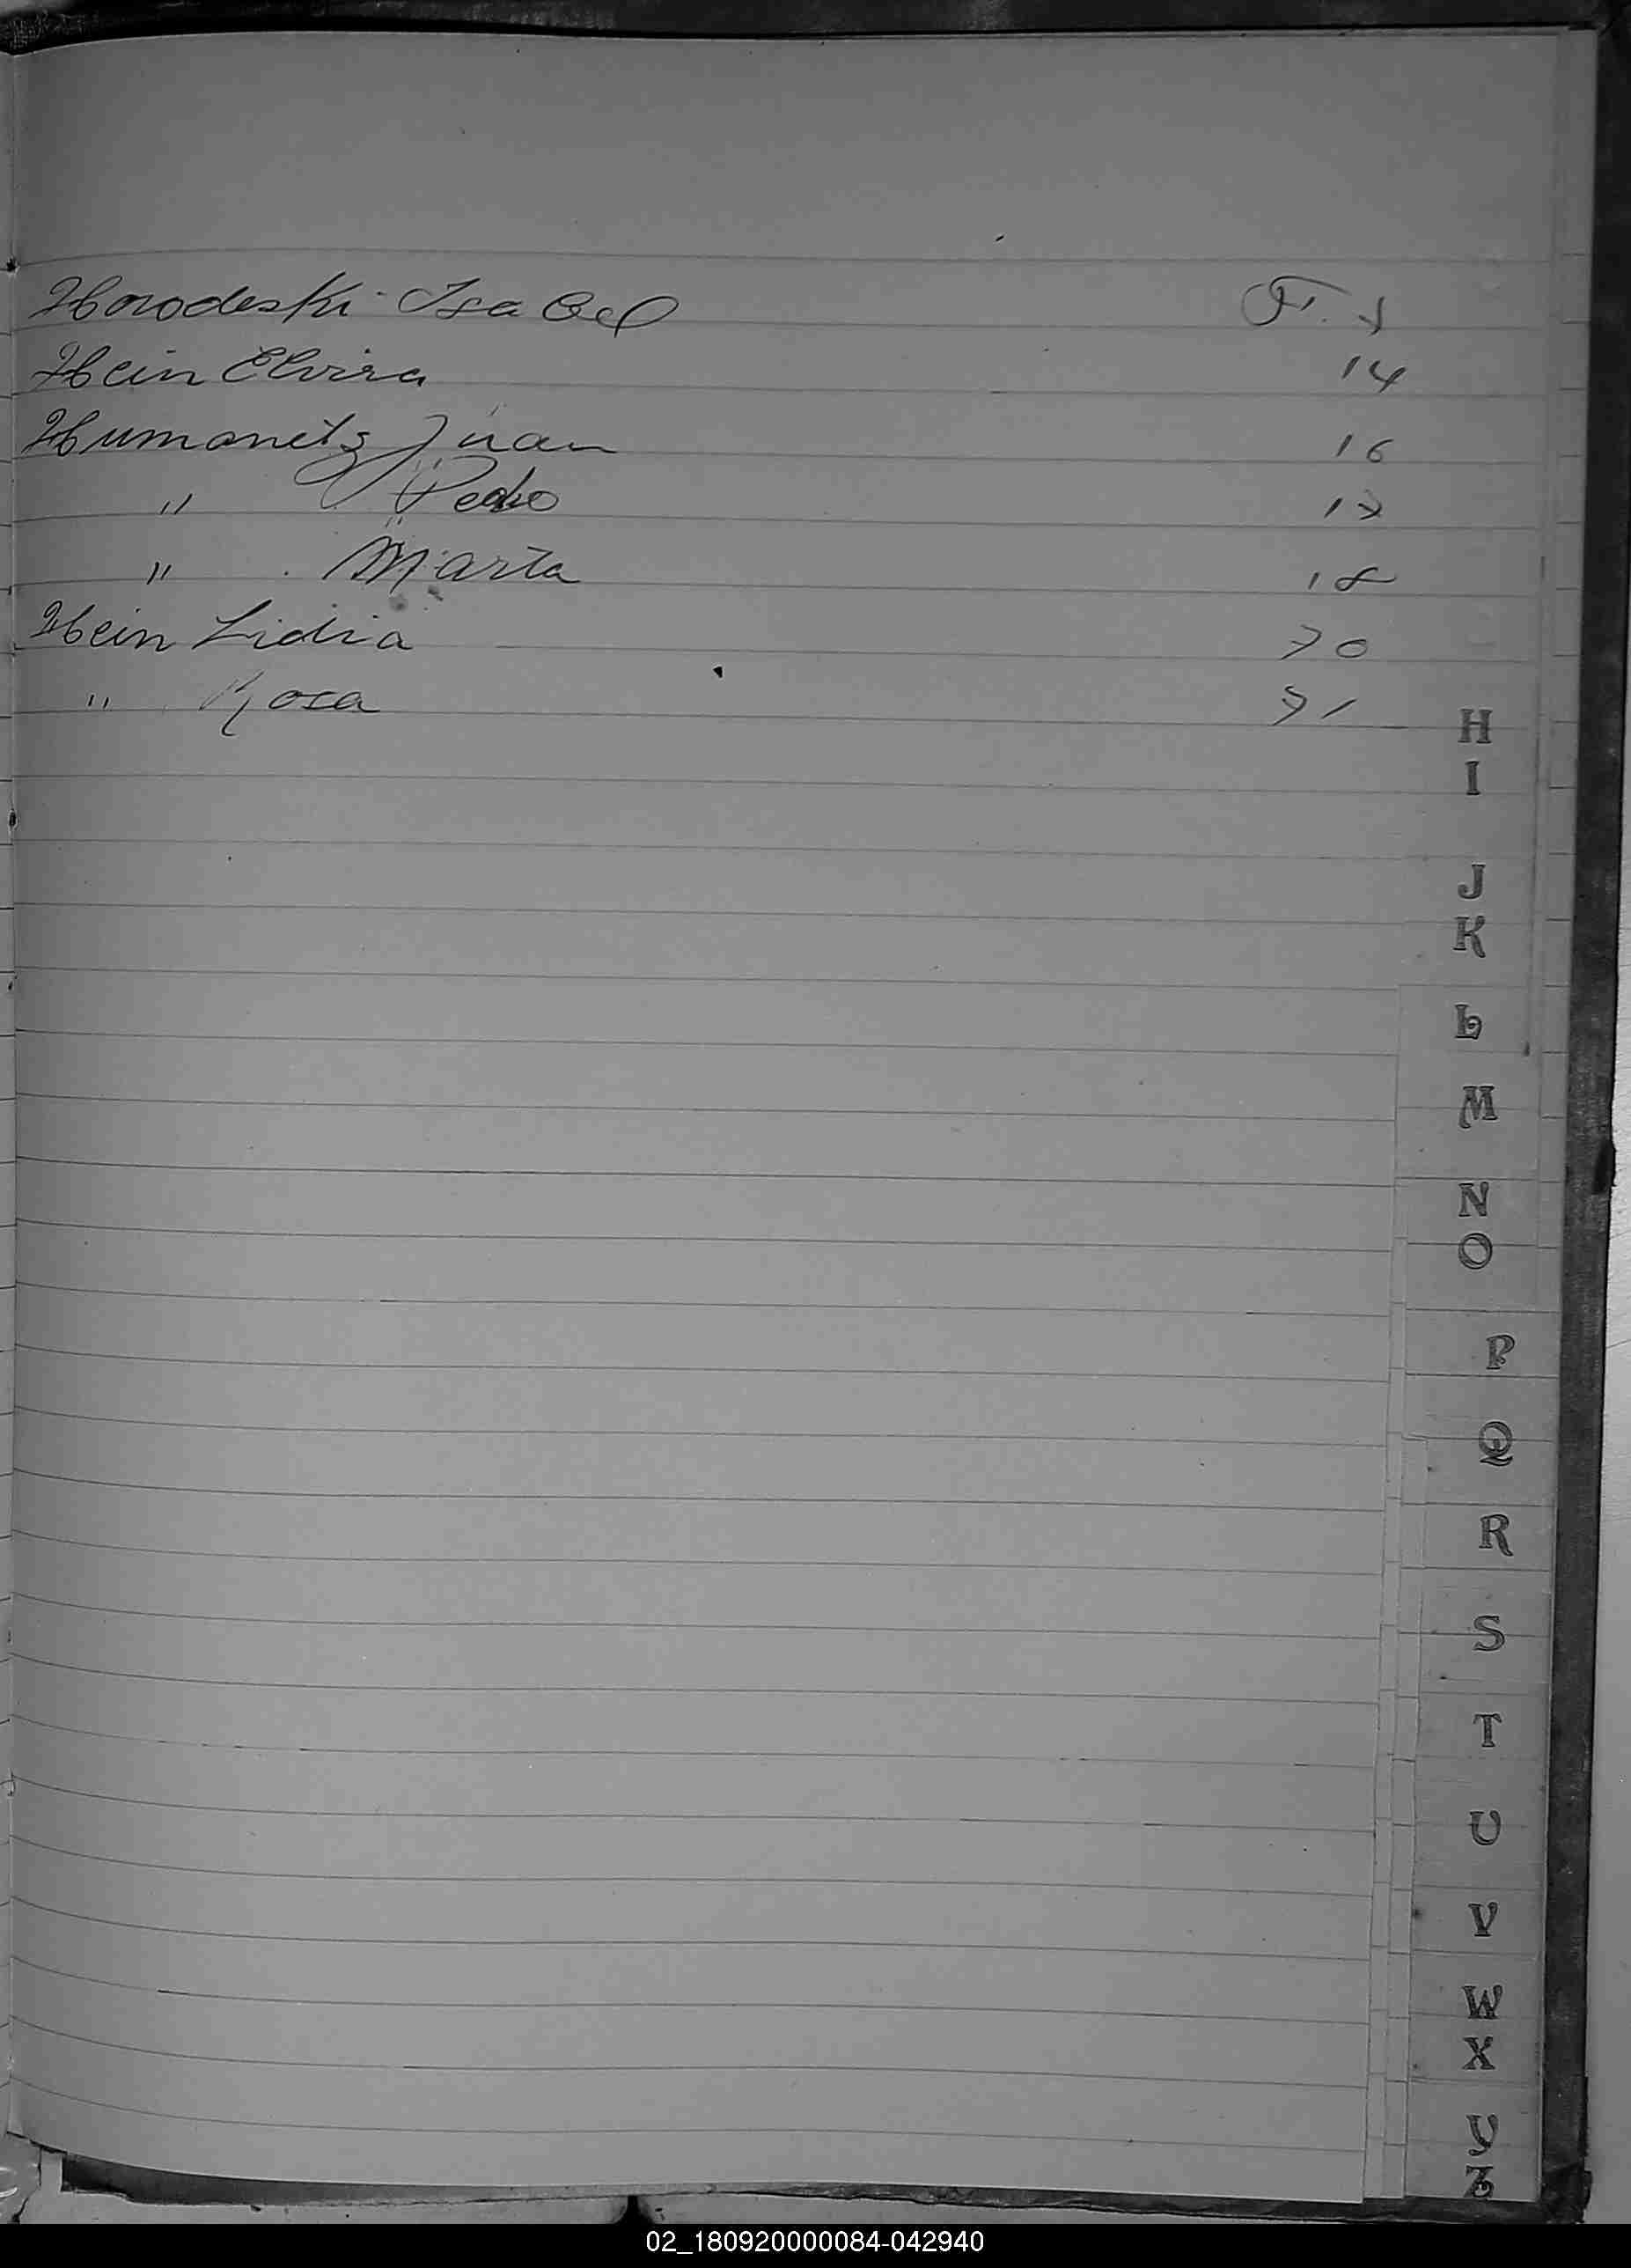 Horodeski Isabel F. 1
Hein Elvira 14
Humanetz Juan 16
" Pedro 17
" Marta 18
Hein Lidia 70
" Rosa 71
H
I
J
K
L
M
N
O
P
Q
R
S
T
U
V
W
X
Y
Z
02_180920000084-042940